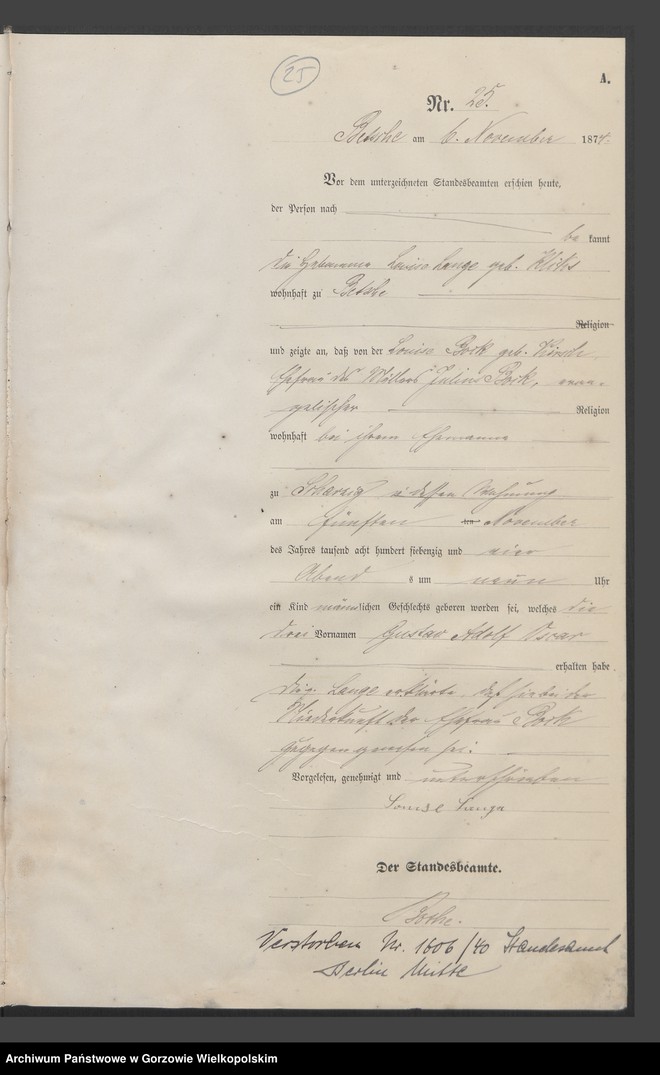 25
A.
Nr. 25.
Betsche am 6. November 1874.
Vor dem unterzeichneten Standesbeamten erschien heute,
der Person nach
be kannt
die Hebamme Louise Lange geb.
wohnhaft zu Betsche
Religion
und zeigte an, daß von der Louise Bock geb. Hirsch
Ehefrau des Müllers Julius Bock, evan-
gelischer Religion
wohnhaft bei ihrem Ehemanne
zu in dessen Wohnung
am fünften ten November
des Jahres tausend acht hundert siebenzig und vier
Abend s um neun Uhr
ein Kind männlichen Geschlechts geboren worden sei, welches die
drei Vornamen Gustav Adolf Oscar
erhalten habe.
Die Lange erklärte, daß sie bei der
Niederkunft der Ehefrau Bock
zugegen gewesen sei.
Vorgelesen, genehmigt und unterschrieben
Louise Lange
Der Standesbeamte.
Verstorben Nr. 1606/40 Standesamt
Berlin Mitte
Archiwum Państwowe w Gorzowie Wielkopolskim